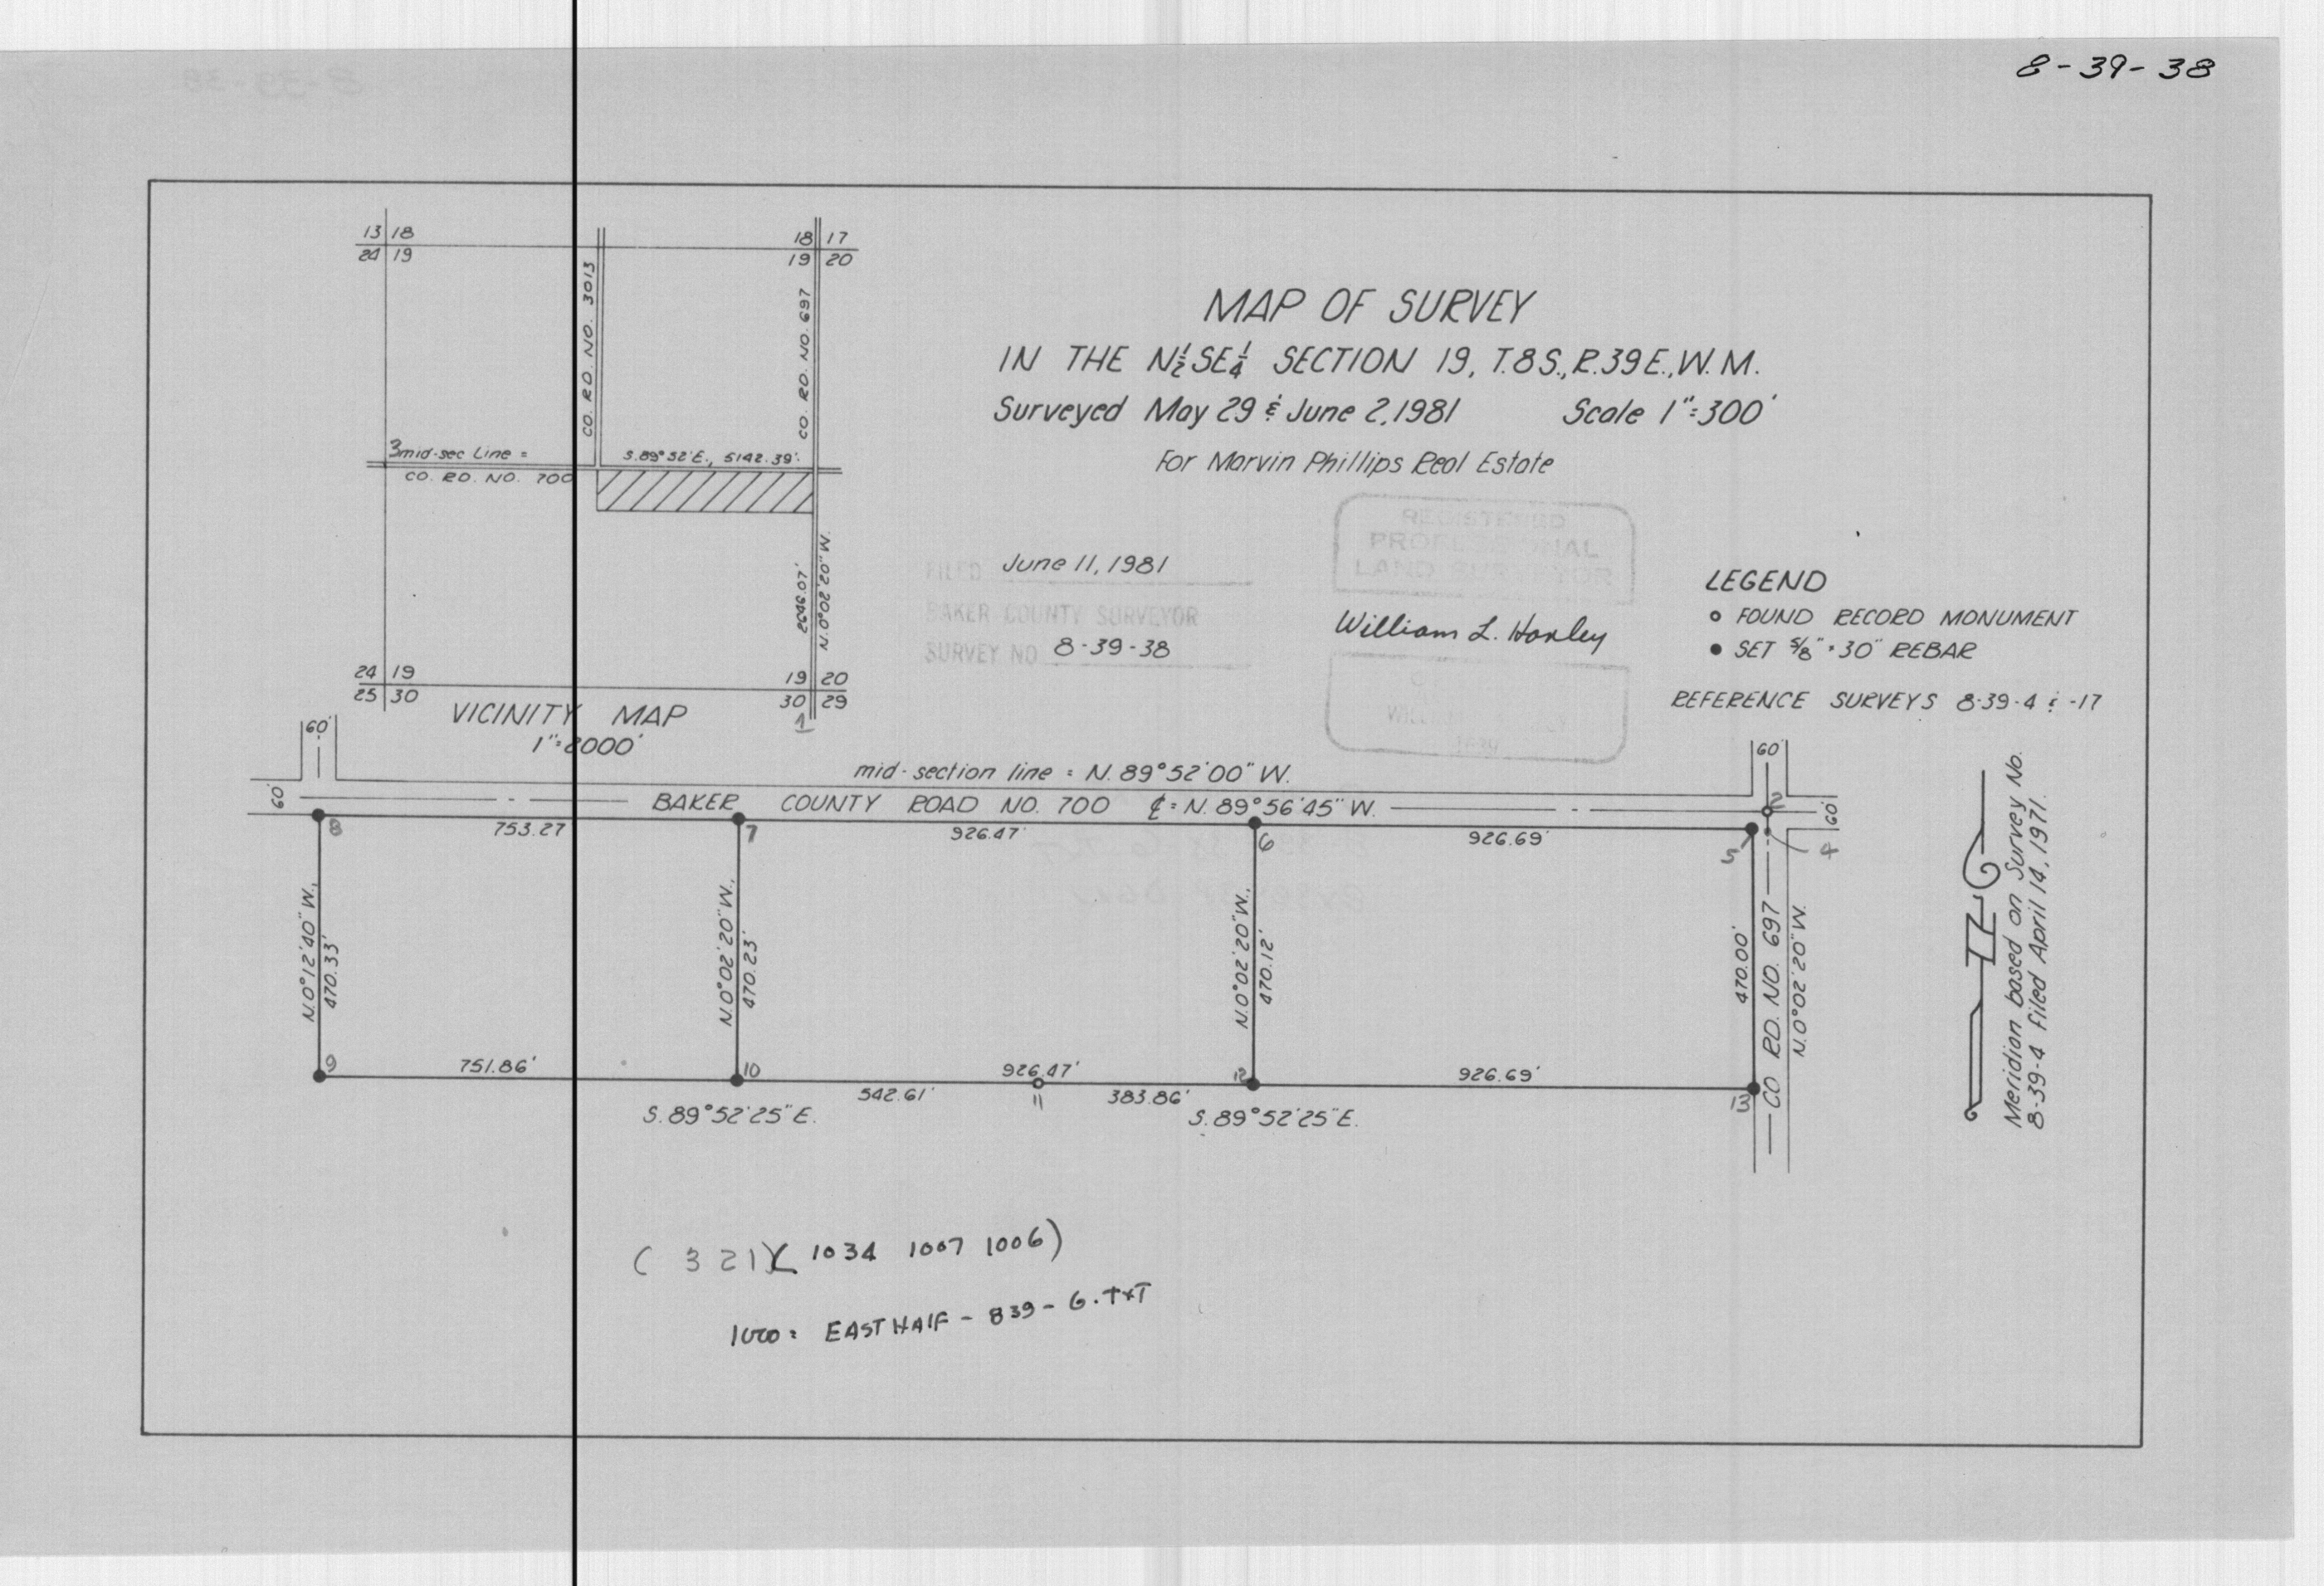 8-39-38
13 18
24 19
18 17
19 20
CO. RD. NO. 3013
CO. RD. NO. 697
3 mid-sec Line =
CO. RD. NO. 700
S.89°52'E., 5142.39'
2646.07'
N.0°02'20"W.
24 19
25 30
19 20
30 29
1
VICINITY MAP
1"=2000'
MAP OF SURVEY
IN THE N½SE¼ SECTION 19, T.8S.,R.39E.,W.M.
Surveyed May 29 & June 2,1981 Scale 1"=300'
For Marvin Phillips Real Estate
FILED June 11, 1981
BAKER COUNTY SURVEYOR
SURVEY NO. 8-39-38
REGISTERED
PROFESSIONAL
LAND SURVEYOR
William L. Hanley
LEGEND
FOUND RECORD MONUMENT
SET 5/8" × 30" REBAR
REFERENCE SURVEYS 8-39-4 & -17
60'
60'
mid-section line = N. 89°52'00" W.
BAKER COUNTY ROAD NO. 700 ℄ = N. 89°56'45" W.
60'
60'
2
8
753.27
7
926.47'
6
926.69'
5
4
N.0°12'40"W.,
470.33'
N.0°02'20"W.,
470.23'
N.0°02'20"W.,
470.12'
470.00'
CO RD. NO. 697
N.0°02'20"W.
9
751.86'
10
926.47'
542.61'
11
383.86'
12
926.69'
13
S. 89°52'25" E.
S. 89°52'25" E.
Meridian based on Survey No.
8-39-4 Filed April 14, 1971.
( 3 2 1)( 1034 1007 1006)
1000 = EASTHALF - 839 - 6.TXT